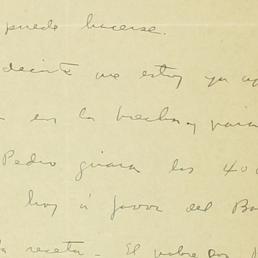 puede hacerse.
decirte que estoy ya
en la brecha y para
Pedro girara los 400
hoy á favor del Ba
la receta. El pobre Don